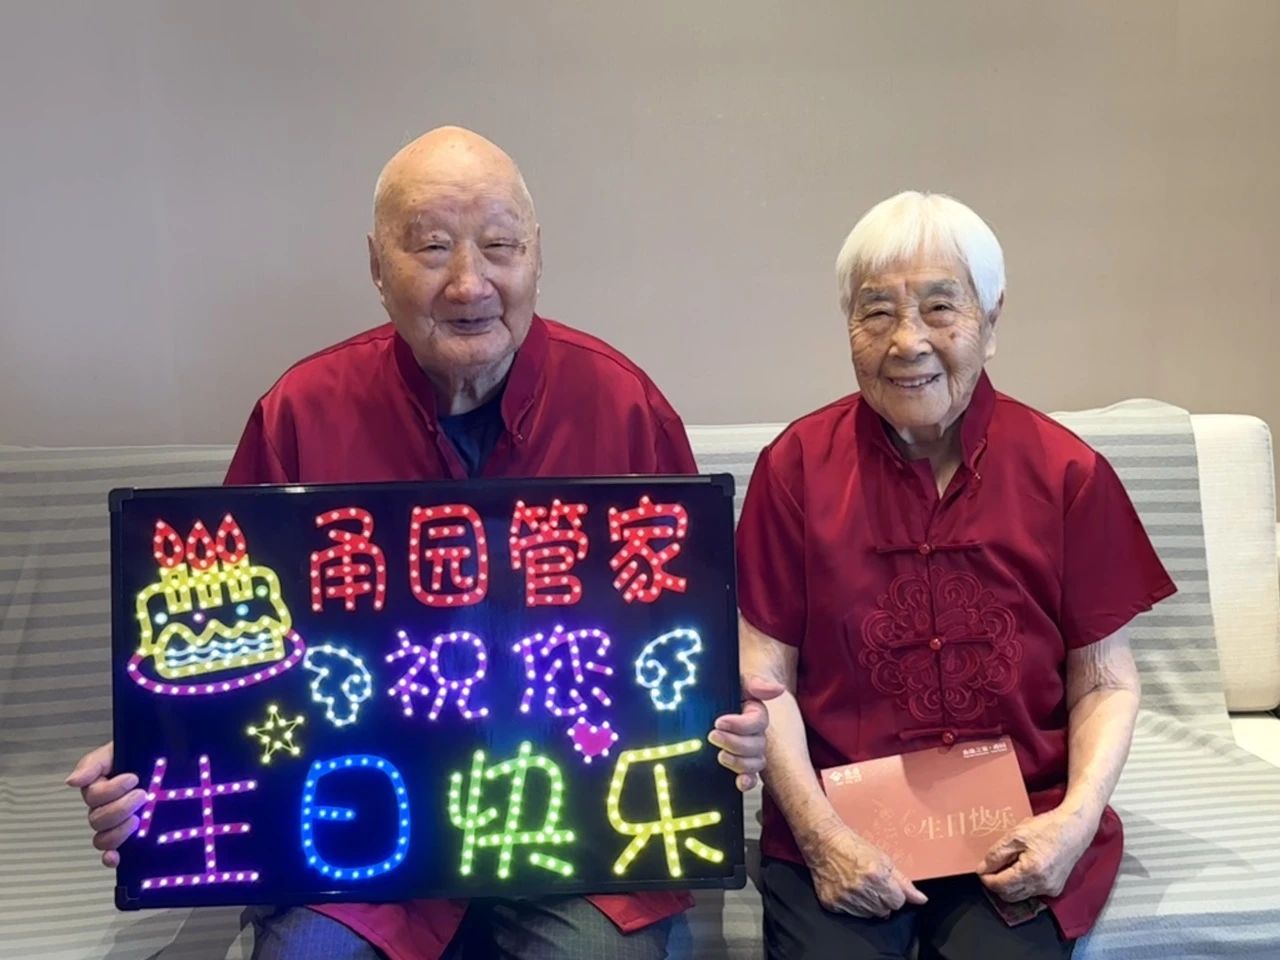 甬园管家
祝您
生日快乐
生日快乐